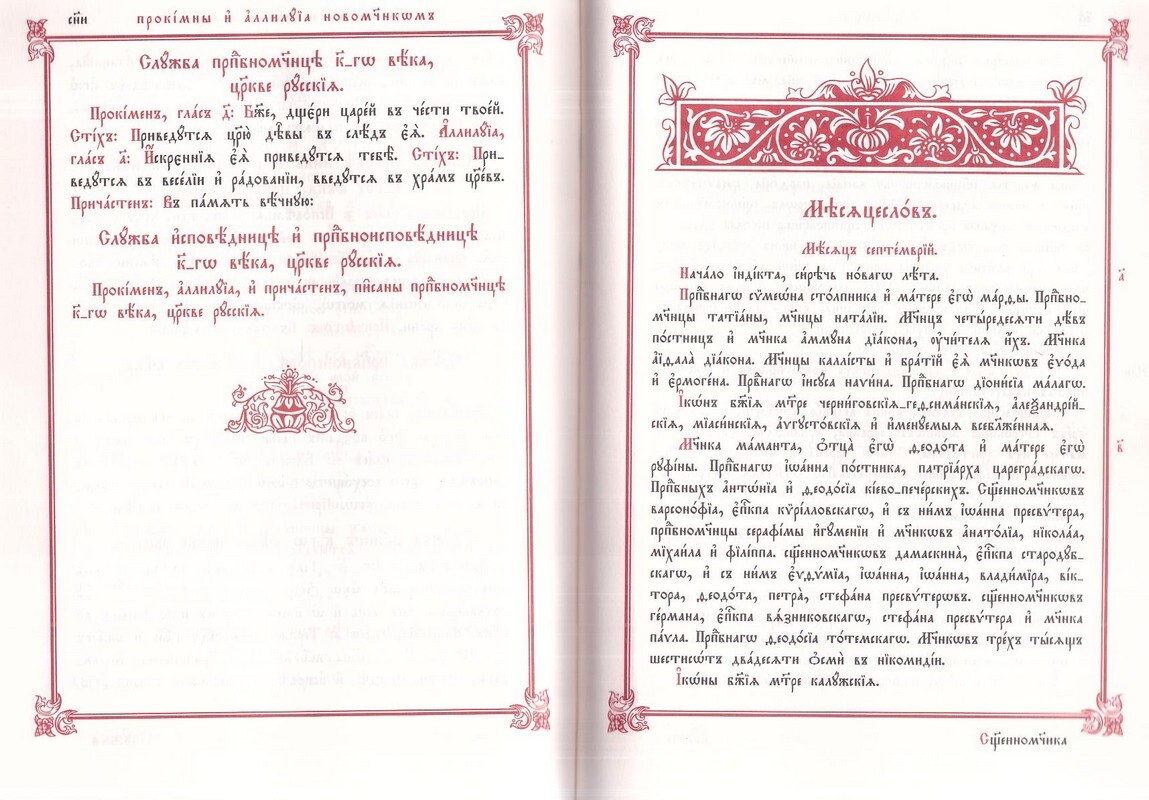 сн҃и прокі́мны и҆ а҆ллилꙋ́їа новомч҃нкѡмъ
Слꙋ́жба прпⷣбномч҃нцѣ к҃_гѡ вѣ́ка,
цр҃кве рꙋ́сскїѧ.
Прокі́менъ, гла́съ д҃: Бж҃е, дщє́ри царе́й въ че́сти твое́й.
Сті́хъ: Приведꙋ́тсѧ цр҃ю̀ дѣ̑вы въ слѣ́дъ є҆ѧ̀. А҆ллилꙋ́їа,
гла́съ а҃: И҆́скрєннїѧ є҆ѧ̀ приведꙋ́тсѧ тебѣ̀. Сті́хъ: При_
ведꙋ́тсѧ въ весе́лїи и҆ ра́дованїи, введꙋ́тсѧ въ хра́мъ цр҃е́въ.
Прича́стенъ: Въ па́мѧть вѣ́чнꙋю:
Слꙋ́жба и҆сповѣ́дницѣ и҆ прпⷣбноисповѣ́дницѣ
к҃_гѡ вѣ́ка, цр҃кве рꙋ́сскїѧ.
Прокі́менъ, а҆ллилꙋ́їа, и҆ прича́стенъ, пи̑саны прпⷣбномч҃нцѣ
к҃_гѡ вѣ́ка, цр҃кве рꙋ́сскїѧ.
Мѣсѧцесло́въ.
Мѣ́сѧцъ септе́мврїй.
Нача́ло і҆нді́кта, си́рѣчь но́вагѡ лѣ́та. а҃
Прпⷣбнагѡ сѷмеѡ́на сто́лпника и҆ ма́тере є҆гѡ̀ ма́рѳы. Прпⷣбно_
мч҃нцы татїа́ны, мч҃нцы ната́лїи. Мч҃нцъ четы́редесѧти дѣ́въ
по́стницъ и҆ мч҃нка а҆ммꙋ́на дїа́кона, ᲂу҆чи́телѧ и҆́хъ. Мч҃нка
а҆їѳа́ла дїа́кона. Мч҃нцы каллі́сты и҆ бра́тїй є҆ѧ̀ мч҃нкѡвъ є҆ѵо́да
и҆ є҆рмоге́на. Првⷣнагѡ і҆исꙋ́са наѵи́на. Прпⷣбнагѡ дїони́сїа ма́лагѡ.
І҆кѡ́нъ бж҃їѧ мт҃ре черни́говскїѧ_геѳсима́нскїѧ, а҆леѯандрі́й_
скїѧ, мїаси́нскїѧ, а҆́ѵгꙋстовскїѧ и҆ и҆менꙋ́емыѧ всебл҃же́ннаѧ.
Мч҃нка ма́манта, ѻ҆тца̀ є҆гѡ̀ ѳеодо́та и҆ ма́тере є҆гѡ̀ в҃
рꙋфі́ны. Прпⷣбнагѡ і҆ѡа́нна по́стника, патрїа́рха цареґра́дскагѡ.
Прпⷣбныхъ а҆нтѡ́нїа и҆ ѳеодо́сїа кі́ево_пече́рскихъ. Сщ҃енномч҃нкѡвъ
варсоно́фїа, є҆пⷭ҇кпа кѷрі́лловскагѡ, и҆ съ ни́мъ і҆ѡа́нна пресвѵ́тера,
прпⷣбномч҃нцы серафі́мы и҆гꙋ́менїи и҆ мч҃нкѡвъ а҆нато́лїа, нїкола́а,
мїхаи́ла и҆ фїлі́ппа. сщ҃енномч҃нкѡвъ дамаскина̀, є҆пⷭ҇кпа староду́б_
скагѡ, и҆ съ ни́мъ є҆ѵѳѵ́мїа, і҆ѡа́нна, і҆ѡа́нна, влади́мїра, ві́к_
тора, ѳеодо́та, петра̀, стефа́на пресвѵ́терѡвъ. сщ҃енномч҃нкѡвъ
ге́рмана, є҆пⷭ҇кпа вѧ́зниковскагѡ, стефа́на пресвѵ́тера и҆ мч҃нка
па́ѵла. Прпⷣбнагѡ ѳеодо́сїа то́темскагѡ. Мч҃нкѡвъ тре́хъ ты́сѧщъ
шестисѡ́тъ два́десѧти ѻ҆смѝ въ нїкомиді́и.
І҆кѡ́ны бж҃їѧ мт҃ре калꙋ́жскїѧ.
Сщ҃енномч҃нка